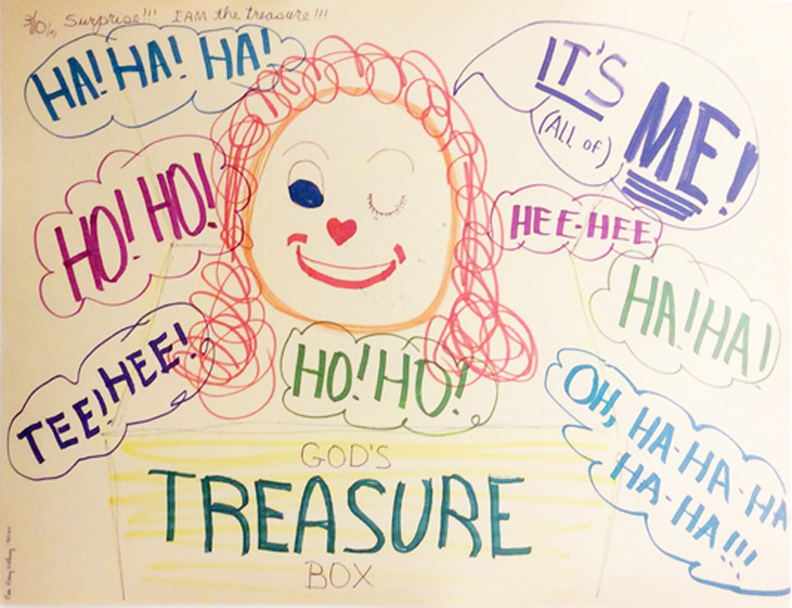 Surprise!!! I AM the treasure!!!
HA! HA! HA!
IT'S
(ALL OF)
ME!
HO! HO!
HEE-HEE
HA! HA!
TEE! HEE!
HO! HO!
OH,
HA-HA-HA
HA-HA!!!
GOD'S
TREASURE
BOX